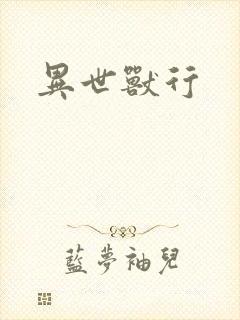 異世獸行
藍夢袖兒